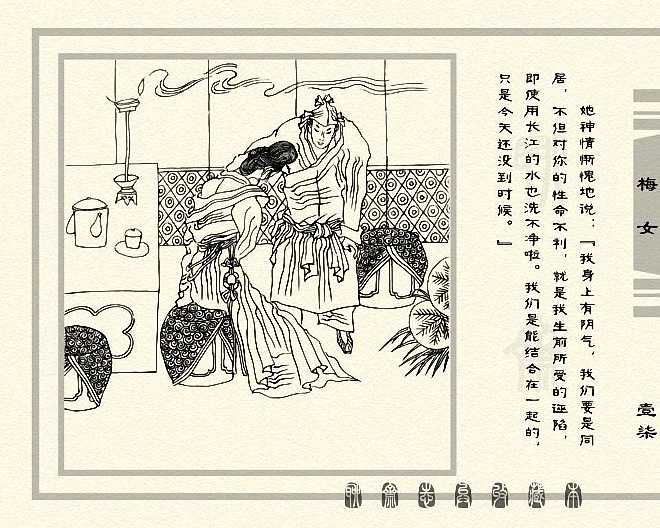 她神情惭愧地说：『我身上有阴气，我们要是同
居，不但对你的性命不利，就是我生前所受的诬陷，
即使用长江的水也洗不净啦。我们是能结合在一起的，
只是今天还没到时候。』
梅女
壹柒